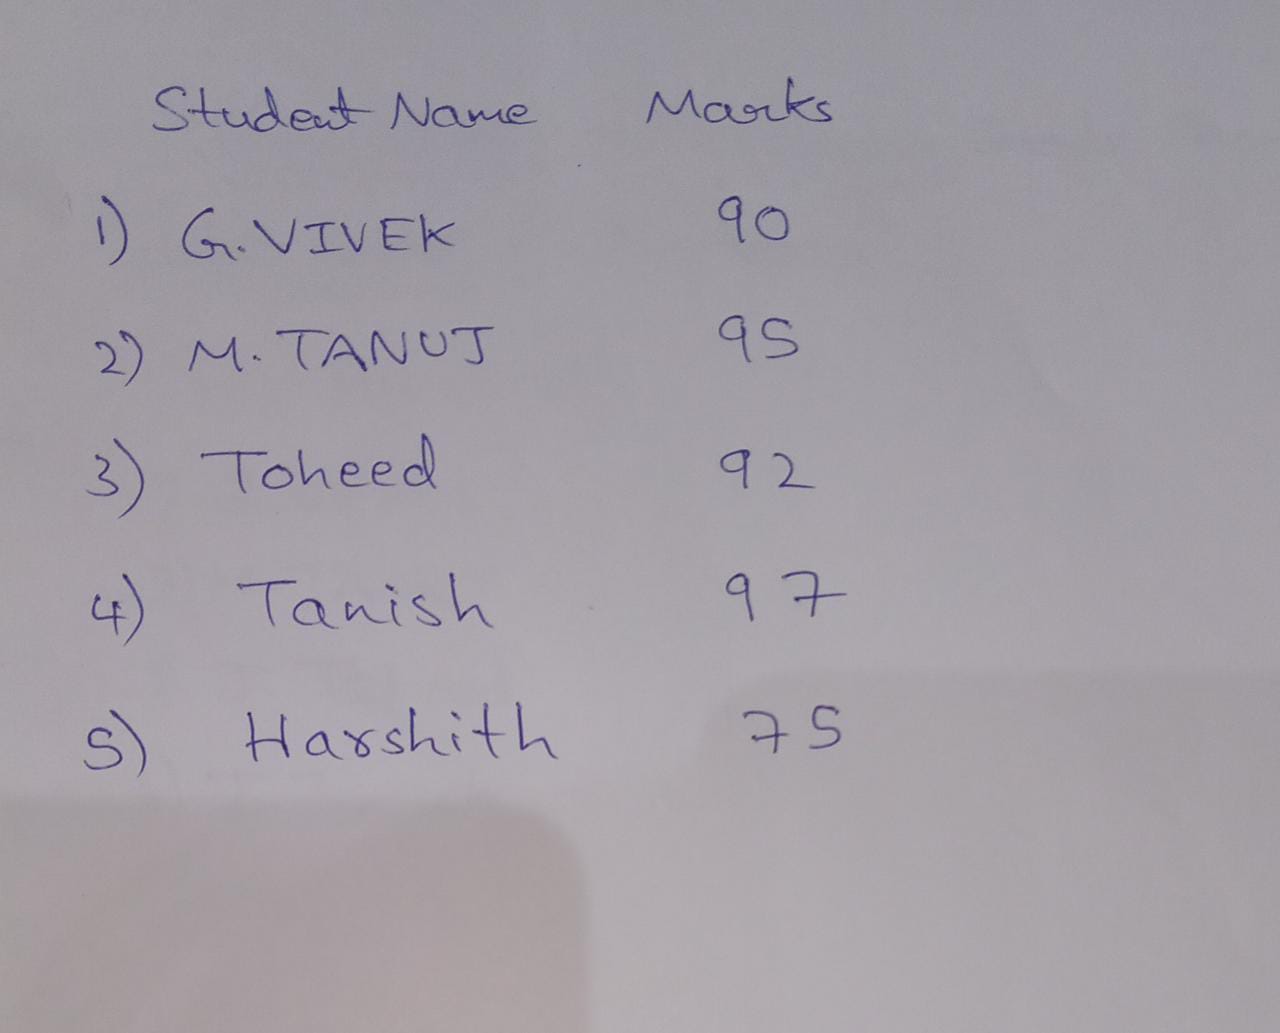 Student Name Marks
1) G.VIVEK 90
2) M. TANUJ 95
3) Toheed 92
4) Tanish 97
5) Harshith 75